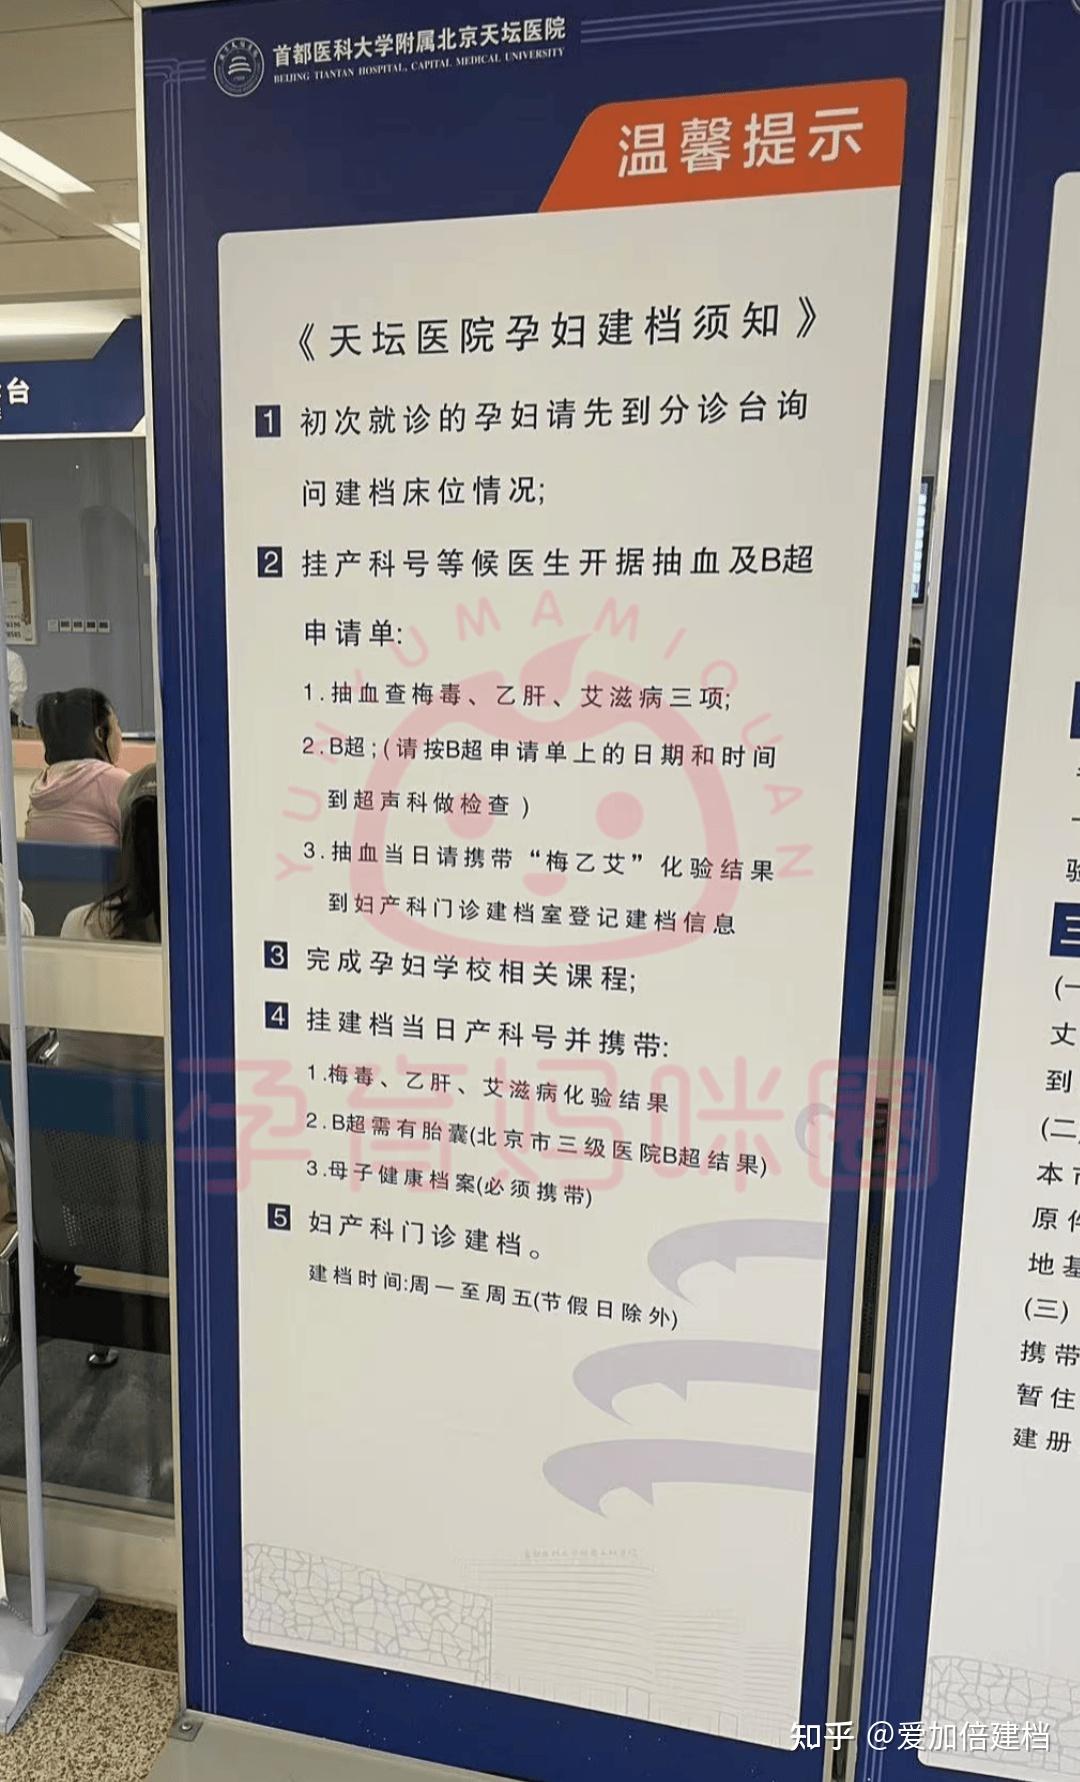 首都医科大学附属北京天坛医院
BEIJING TIANTAN HOSPITAL, CAPITAL MEDICAL UNIVERSITY
温馨提示
《天坛医院孕妇建档须知》
1 初次就诊的孕妇请先到分诊台询
问建档床位情况;
2 挂产科号等候医生开据抽血及B超
申请单:
1.抽血查梅毒、乙肝、艾滋病三项;
2.B超;(请按B超申请单上的日期和时间
到超声科做检查)
3.抽血当日请携带“梅乙艾”化验结果
到妇产科门诊建档室登记建档信息
3 完成孕妇学校相关课程;
4 挂建档当日产科号并携带:
1.梅毒、乙肝、艾滋病化验结果
2.B超需有胎囊(北京市三级医院B超结果)
3.母子健康档案(必须携带)
5 妇产科门诊建档。
建档时间:周一至周五(节假日除外)
台
YUNYUMAMIQUAN
孕育妈咪圈
验
三
(一
丈
到
(二
本市
原件
地基
(三)
携带
暂住
建册
知乎 @爱加倍建档